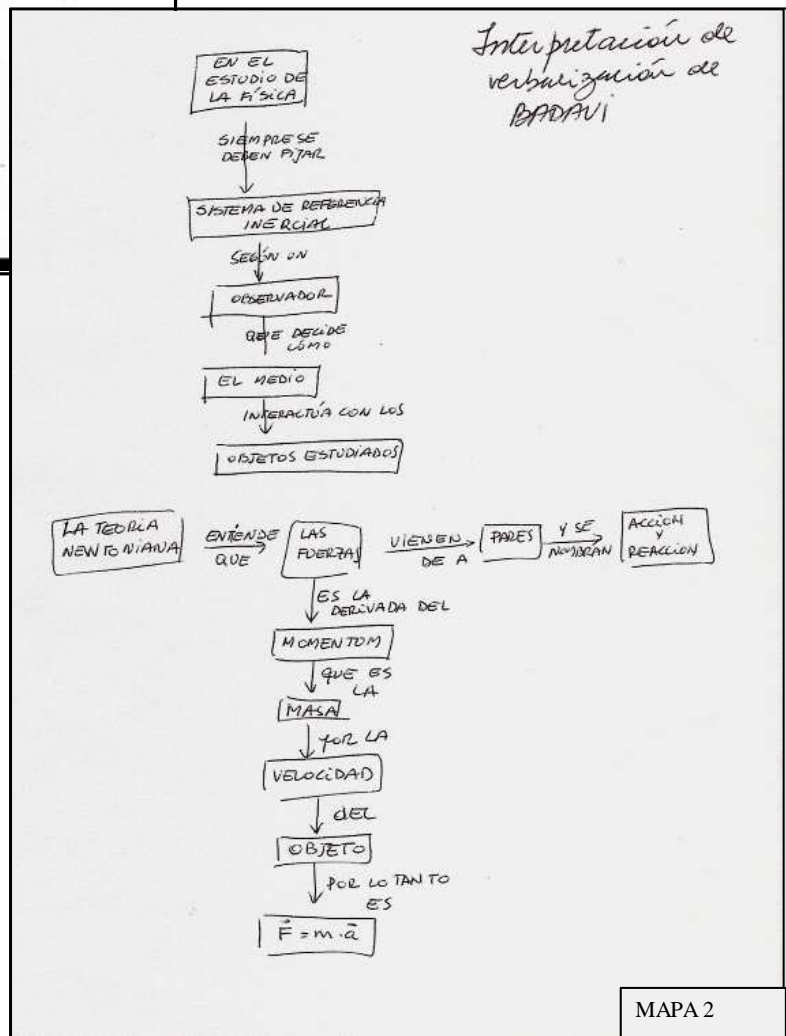 Interpretación de
verbarización de
BADAVI
EN EL
ESTUDIO DE
LA FÍSICA
SIEMPRE SE
DEBEN FIJAR
SISTEMA DE REFERENCIA
INERCIAL
SEGÚN UN
OBSERVADOR
QUE DECIDE
CÓMO
EL MEDIO
INTERACTÚA CON LOS
OBJETOS ESTUDIADOS
LA TEORIA
NEWTONIANA
ENTIENDE
QUE
LAS
FUERZAS
VIENEN
DE A
PARES
Y SE
NOMBRAN
ACCION
Y
REACCION
ES LA
DERIVADA DEL
MOMENTOM
QUE ES
LA
MASA
POR LA
VELOCIDAD
DEL
OBJETO
POR LO TANTO
ES
F⃗ = m · a⃗
MAPA 2